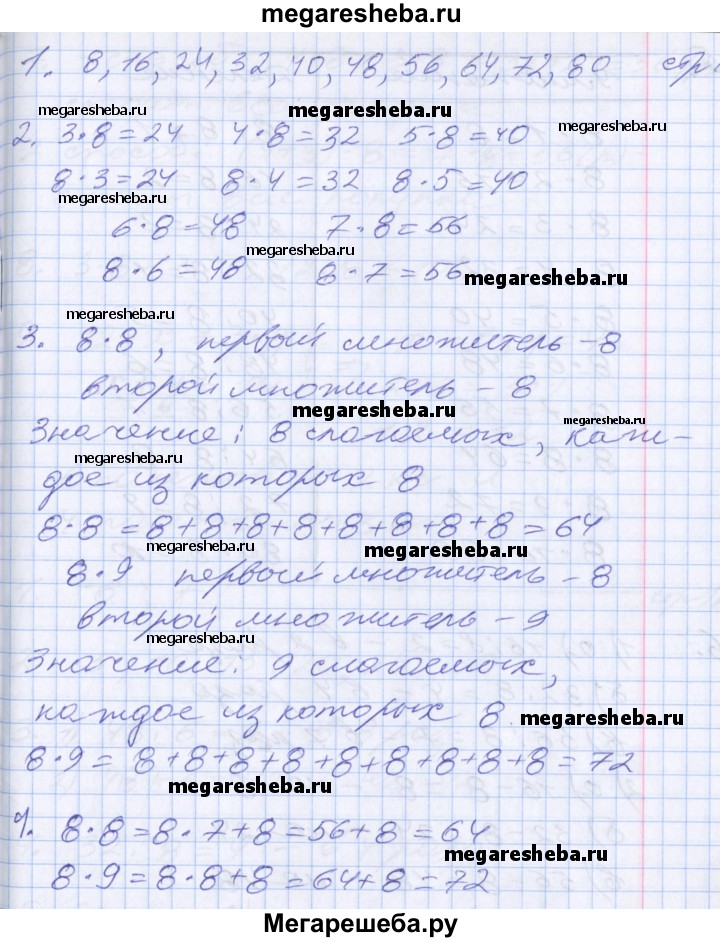 megaresheba.ru
1. 8, 16, 24, 32, 40, 48, 56, 64, 72, 80 стр
megaresheba.ru megaresheba.ru megaresheba.ru
2. 3·8=24 4·8=32 5·8=40
8·3=24 8·4=32 8·5=40
megaresheba.ru
6·8=48 7·8=56
megaresheba.ru
8·6=48 8·7=56 megaresheba.ru
megaresheba.ru
3. 8·8, первый множитель -8
второй множитель - 8
megaresheba.ru megaresheba.ru
Значение: 8 слагаемых, каж-
megaresheba.ru
дое из которых 8
8·8 = 8+8+8+8+8+8+8+8 = 64
megaresheba.ru megaresheba.ru
8·9 первый множитель - 8
второй множитель - 9
megaresheba.ru
Значение: 9 слагаемых,
каждое из которых 8 megaresheba.ru
8·9 = 8+8+8+8+8+8+8+8+8 = 72
megaresheba.ru
4. 8·8=8·7+8=56+8=64
megaresheba.ru
8·9=8·8+8=64+8=72
Мегарешеба.ру